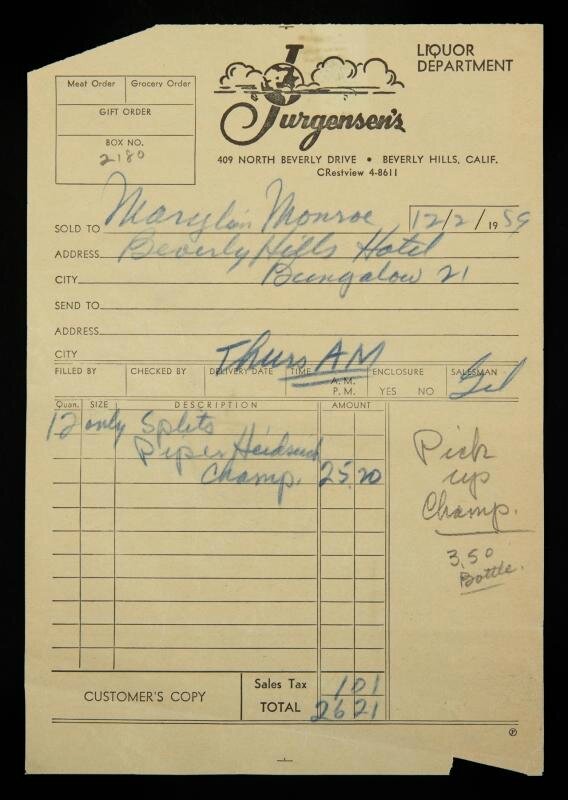 LIQUOR
DEPARTMENT
Jurgensen's
409 NORTH BEVERLY DRIVE • BEVERLY HILLS, CALIF.
CRestview 4-8611
Meat Order Grocery Order
GIFT ORDER
BOX NO.
2180
SOLD TO Marylin Monroe 12/2/1959
ADDRESS Beverly Hills Hotel
CITY Bungalow 21
SEND TO
ADDRESS
CITY Thurs AM
FILLED BY CHECKED BY DELIVERY DATE TIME A.M. P.M. ENCLOSURE YES NO SALESMAN Gil
Quan. SIZE DESCRIPTION AMOUNT
12 only Splits
Piper Heidsieck
Champ. 25.20
Pick
up
Champ.
3.50
Bottle.
CUSTOMER'S COPY
Sales Tax 1 01
TOTAL 26 21
P